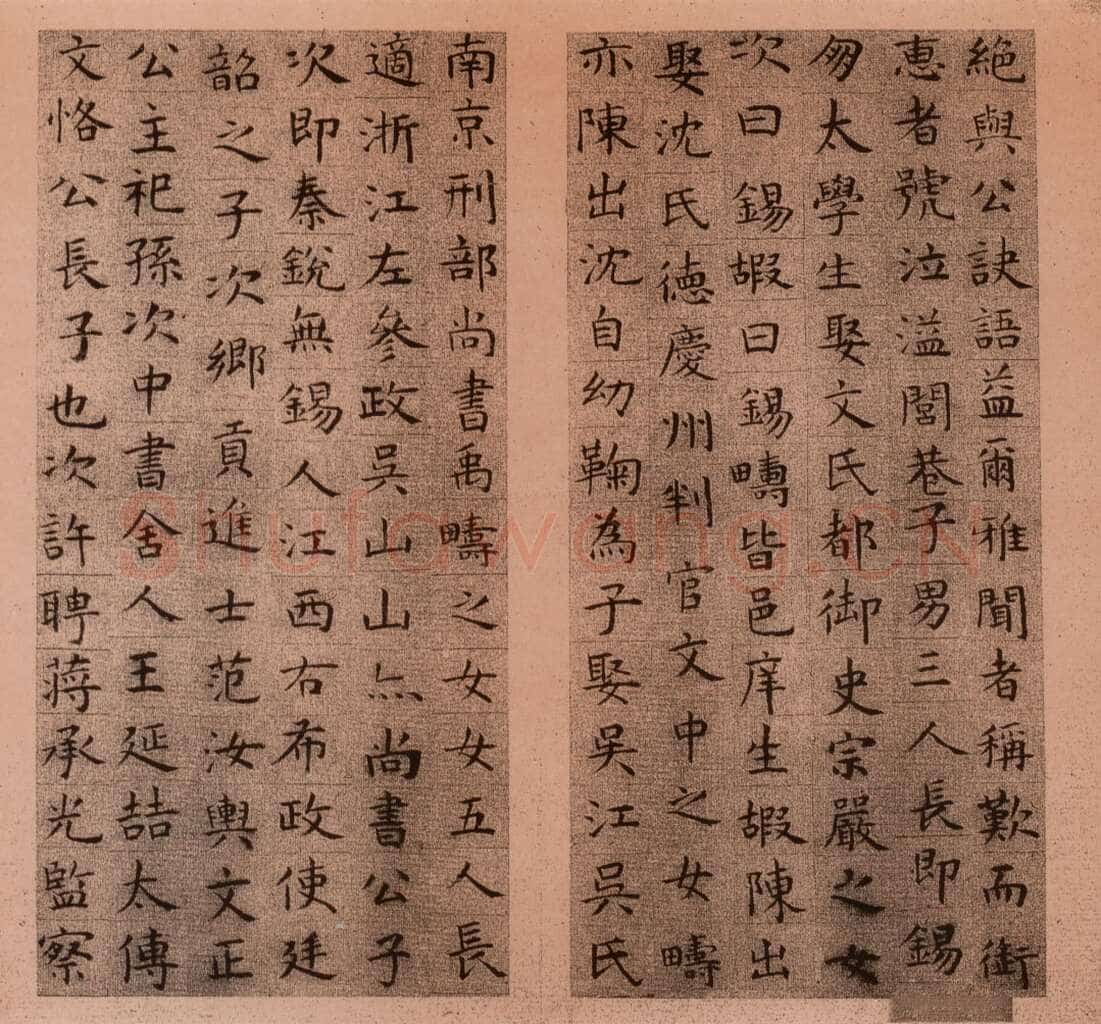 絶與公訣語益爾雅聞者稱歎而銜
惠者號泣溢閭巷子男三人長即錫
匆太學生娶文氏都御史宗嚴之女
次曰錫嘏曰錫疇皆邑庠生嘏陳出
娶沈氏德慶州判官文中之女疇
亦陳出沈自幼鞠為子娶吳江吳氏
南京刑部尚書禹疇之女女五人長
適浙江左參政吳山山亦尚書公子
次即秦銳無錫人江西右布政使廷
韶之子次鄉貢進士范汝輿文正
公主祀孫次中書舍人王延喆太傅
文恪公長子也次許聘蔣承光監察
Shufawang.CN